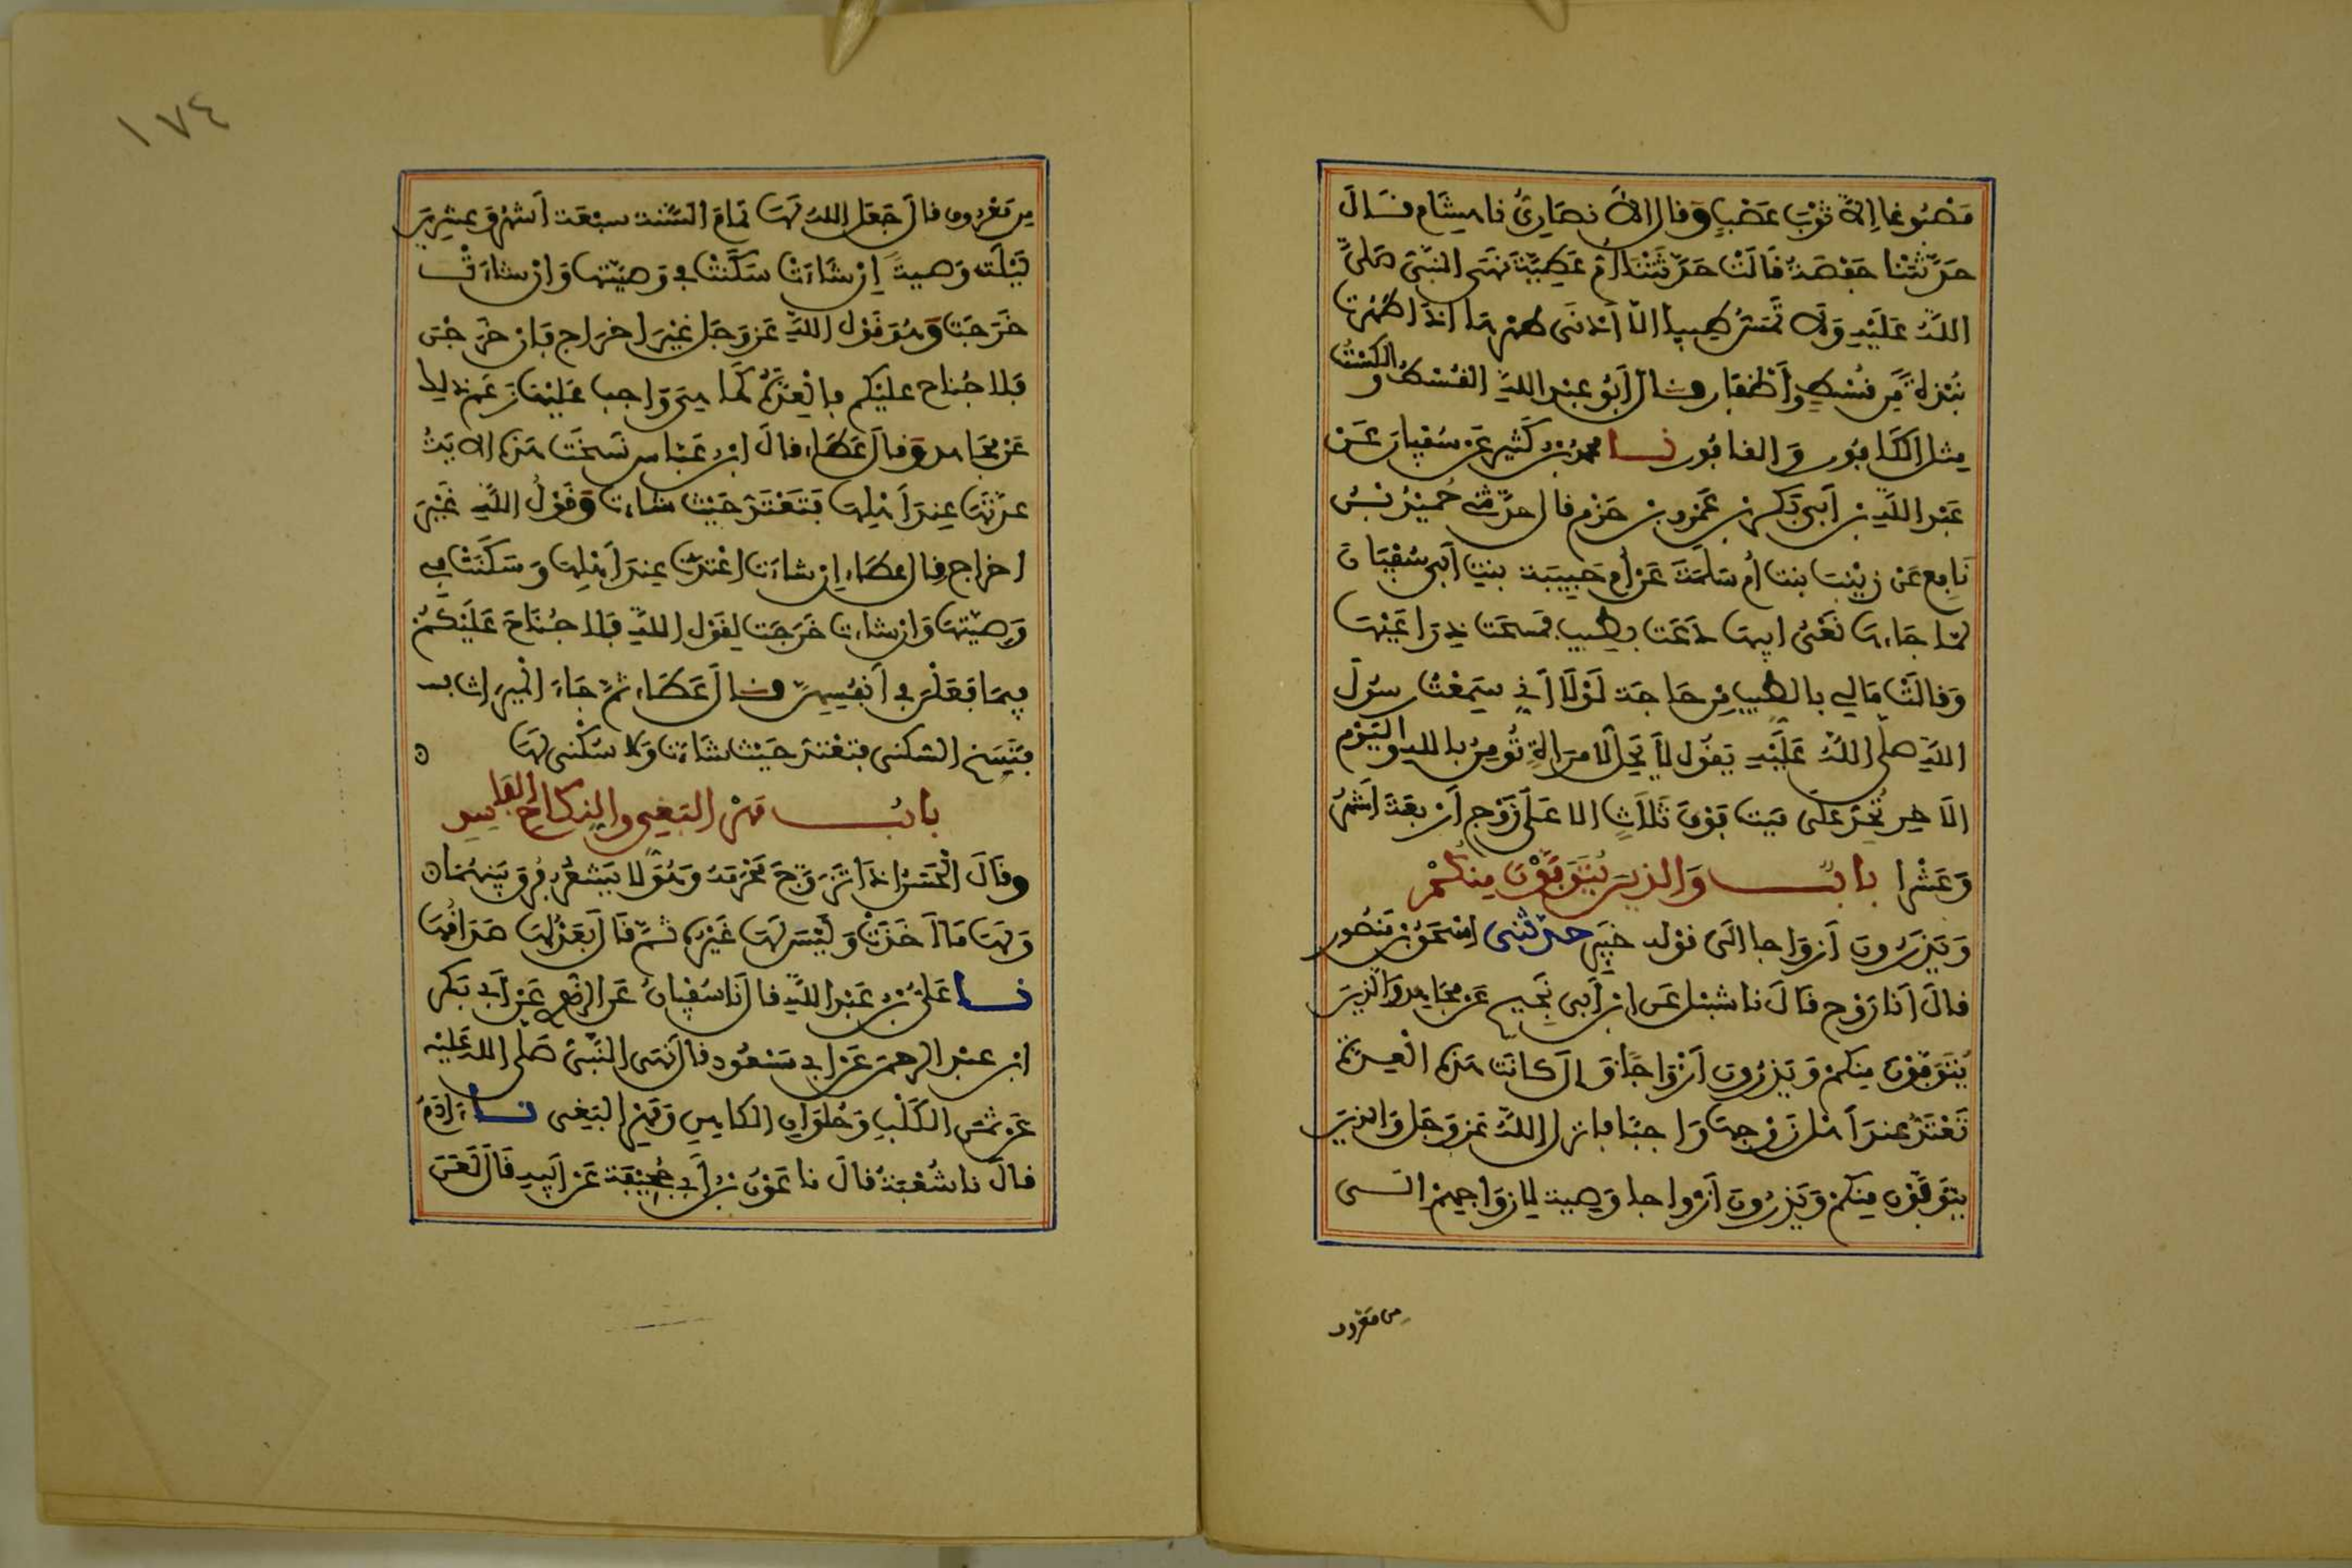 مَصْبُوغا إِلاَّ ثَوْبَ عَصْبٍ وَقال الأَنصَارِيُّ نا هِشَام قَالَ
حَدَّثَتْنا حَفْصَةُ قَالَتْ حَدَّثَتْنَا أُمّ عَطِيَّةَ نَهَى النبَّى صَلىَّ
اللَّهُ عَلَيْهِ وَلاَ تَمَسَّ طيبا الاّ أدْنَى طهرها اذَا طهُرت
نُبْذة مِّن قُسْطٍ وأَظْفَار قال أَبُو عبْد اللَّهِ القُسْط والكسْتُ
مثل الكَافُور وَالقافُور نا محمدُ بْن كَثير عَن سُفْيانَ عَنْ
عَبْد اللَّهِ بن أَبى بَكر بن عَمْرو بن حَزْم قال حدّثنى حُمَيْدُ بْنُ
نَافِع عَنْ زيْنَبَ بنت أُم سَلَمَةَ عَن أُمِ حَبِيبَة بنت أَبى سُفْيَانَ
لمّا جَاءهَا نَعْىُ ابيهَا دَعَت بطيب فمسحَت ذِرَاعَيْهَا
وَقالتْ مَالِى بالطيب مِن حَاجَة لَوْلَا أَنِّى سَمِعْتُ رسُولَ
اللَّهِ صلّى اللَّهُ عَلَيْهِ يَقُول لاَ يَحِلُّ لامرَأةٍ تُومِنُ بالله واليَوْم
الاَخِر تُحِدّ علَى مَيت فَوْقَ ثَلاَثٍ الا عَلَى زَوْج أَرْبعَةَ أَشْهُر
وَعَشْرا بابُ وَالذينَ يُتَوَفَّوْنَ مِنكُمْ
وَيَذَرُونَ أَزوَاجا الَى قوْله خَبِير حدّثنى اسْحٰقُ بْن مَنصُور
قالَ أَنا رَوْح قَالَ نا شبْل عَن ابن أَبى نَجِيح عَن مجَاهد وَالذِينَ
يُتَوَفّوْنَ مِنكمْ وَيَذَرُونَ أَزْوَاجًا قَالَ كانَت هَذه الْعِدّةُ
تَعْتَدُّ عندَ أَهْل زَوْجهَا وَاجبًا فانزل اللَّهُ عَز وَجَل وَالذينَ
يتَوَفَّوْن مِنكمْ وَيَذَرُونَ أَزْوَاجا وَصِية لِأزوَاجِهِمْ الى
من مَعْرُوف
١٧٤
مِن مَعْرُوف قالَ جَعَل اللهُ لَهَا تَمَامَ السَّنَة سبْعَة أَشْهُر وَعِشْرِينَ
لَيْلَة وَصيةً إِن شَاءَتْ سَكَنَتْ فِى وَصِيّتهَا وَإنْ شَاءَتْ
خَرَجَت وَهُوَ قَوْل اللَّهِ عَز وَجَل غيْرَ اخرَاج فَإنْ خَرَجْنَ
فَلا جُناح عليْكم فالْعِدَّةُ كَمَا هىَ وَاجب عَلَيْها زعَم ذلِك
عَنْ مجَاهد وَقالَ عَطَاء قالَ ابنُ عَبّاس نَسخَت هَذه الايَةُ
عدّتهَا عِندَ أَهْلِهَا فَتَعْتَدّ حَيْث شاءت وَقَوْلُ اللَّهِ غَيْرَ
اخرَاج قال عطَاء إن شاءَت اعْتدّت عِندَ أَهْلِهَا وَسَكَنَتْ فِى
وَصِيّتهَا وَإنْ شاءَت خَرَجَت لِقَوْل اللَّهِ فَلا جُنَاحَ عَلَيْكُمْ
فِيمَا فَعَلْنَ فِى أَنفُسِهِنّ قال عَطَاء ثمَّ جَاءَ الْمِيرَاث
فَنَسَخ السّكنى فتَعْتدّ حَيْث شَاءَت وَلا سُكْنَى لَهَا ن
بابُ مَهْر البَغِى والنكاح الفَاسِد
وقالَ الْحَسَن اذَا تَزَوَّجَ مَحْرَمَةً وَهُوَ لا يَشعُر فُرِقَ بَيْنَهُمَا ن
وَلَهَا مَا أَخَذَتْ وَلَيْسَ لَهَا غَيْره ثمّ قَالَ بَعْدُ لَهَا صَدَاقُهَا
نا عَلىُّ بْنُ عَبْد اللَّهِ قال نَا سُفْيانُ عَن الزهْرِى عَنْ أَبِى بَكر
ابْن عبْد الرحمن عَن أَبِى مَسْعُود قال نَهَى النّبىُّ صَلى الله عَليْه
عَن ثمَن الكَلْبِ وَحُلْوَانِ الكاهِن وَمَهْر البَغِى نا ءَادَمُ
قالَ نا شُعْبَةُ قالَ نا عَوْنُ بْنُ أَبِى جُحَيْفَة عَن أَبيهِ قَالَ لَعَنَ